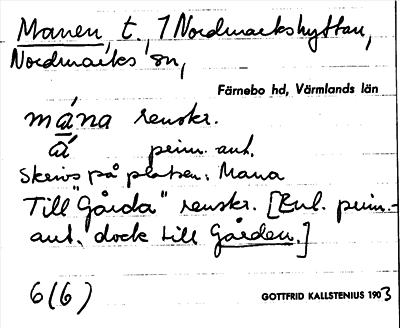 Manen, t., 7 Nordmarkshyttan,
Nordmarks sn,
Färnebo hd, Värmlands län
mána renskr.
á prim. ant.
Skrivs på platsen: Mana
Till "Gårda" renskr. [Enl. prim.-
ant. dock till Gården.]
6(6)
GOTTFRID KALLSTENIUS 1903